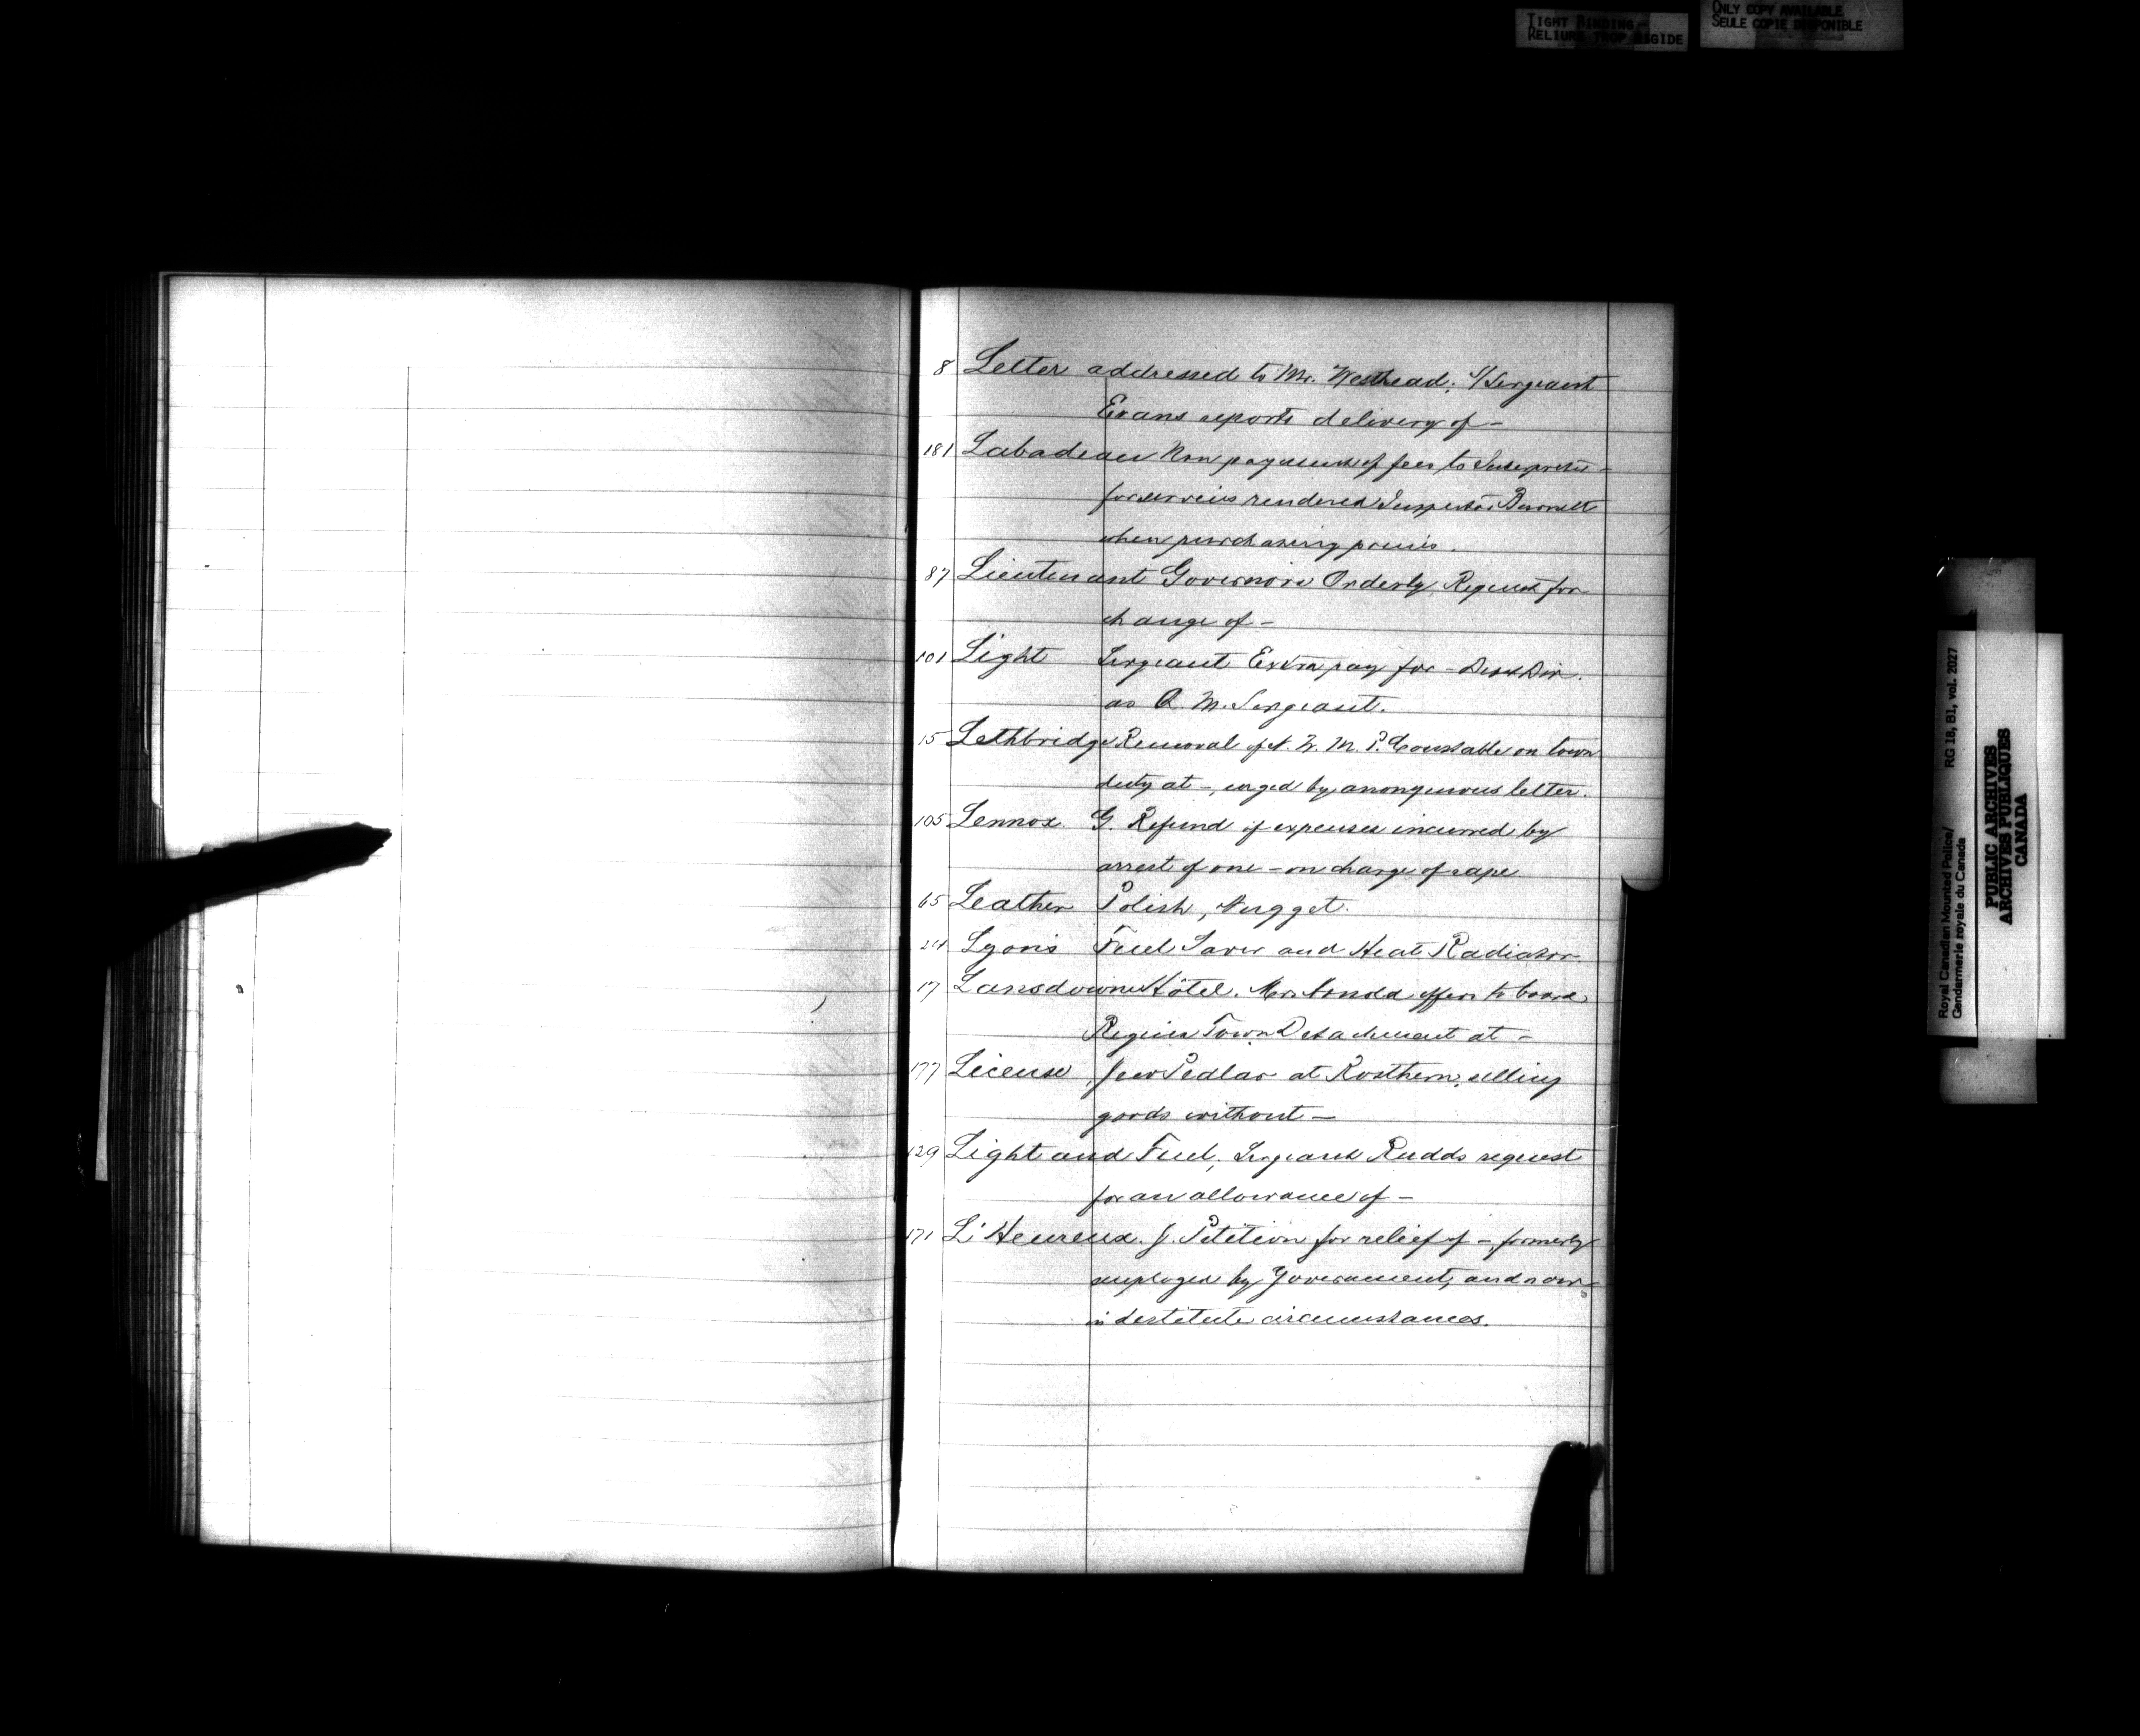 TIGHT BINDING -
RELIURE TROP RIGIDE
ONLY COPY AVAILABLE
SEULE COPIE DISPONIBLE
8 Letter addressed to Mr. Westhead; S/Sergeant
Evans reports delivery of -
181 Labadeau Non payment of fees to Interpreter -
for services rendered Inspector Burnett
when purchasing ponies.
87 Lieutenant Governors Orderly Request for
change of -
101 Light Sergeant Extra pay for - Depot Div.
as Q. M. Sergeant.
15 Lethbridge Removal of N. W. M. P. Constable on town
duty at -, urged by anonymous letter.
105 Lennox G. Refund of expenses incurred by
arrest of one - on charge of rape.
65 Leather Polish, Nugget.
Lyon's Fuel Saver and Heat Radiator.
17 Lansdowne Hotel. Mrs. Arnold offers to board
Regina Town Detachment at -
177 License, Jew Pedlar at Rosthern, selling
goods without -
129 Light and Fuel, Sergeant Rudds request
for an allowance of -
171 L'Heureux. J. Petition for relief of -, formerly
employed by Government, and now
in destitute circumstances.
Royal Canadian Mounted Police/ RG 18, B1, vol. 2027
Gendarmerie royale du Canada
PUBLIC ARCHIVES
ARCHIVES PUBLIQUES
CANADA